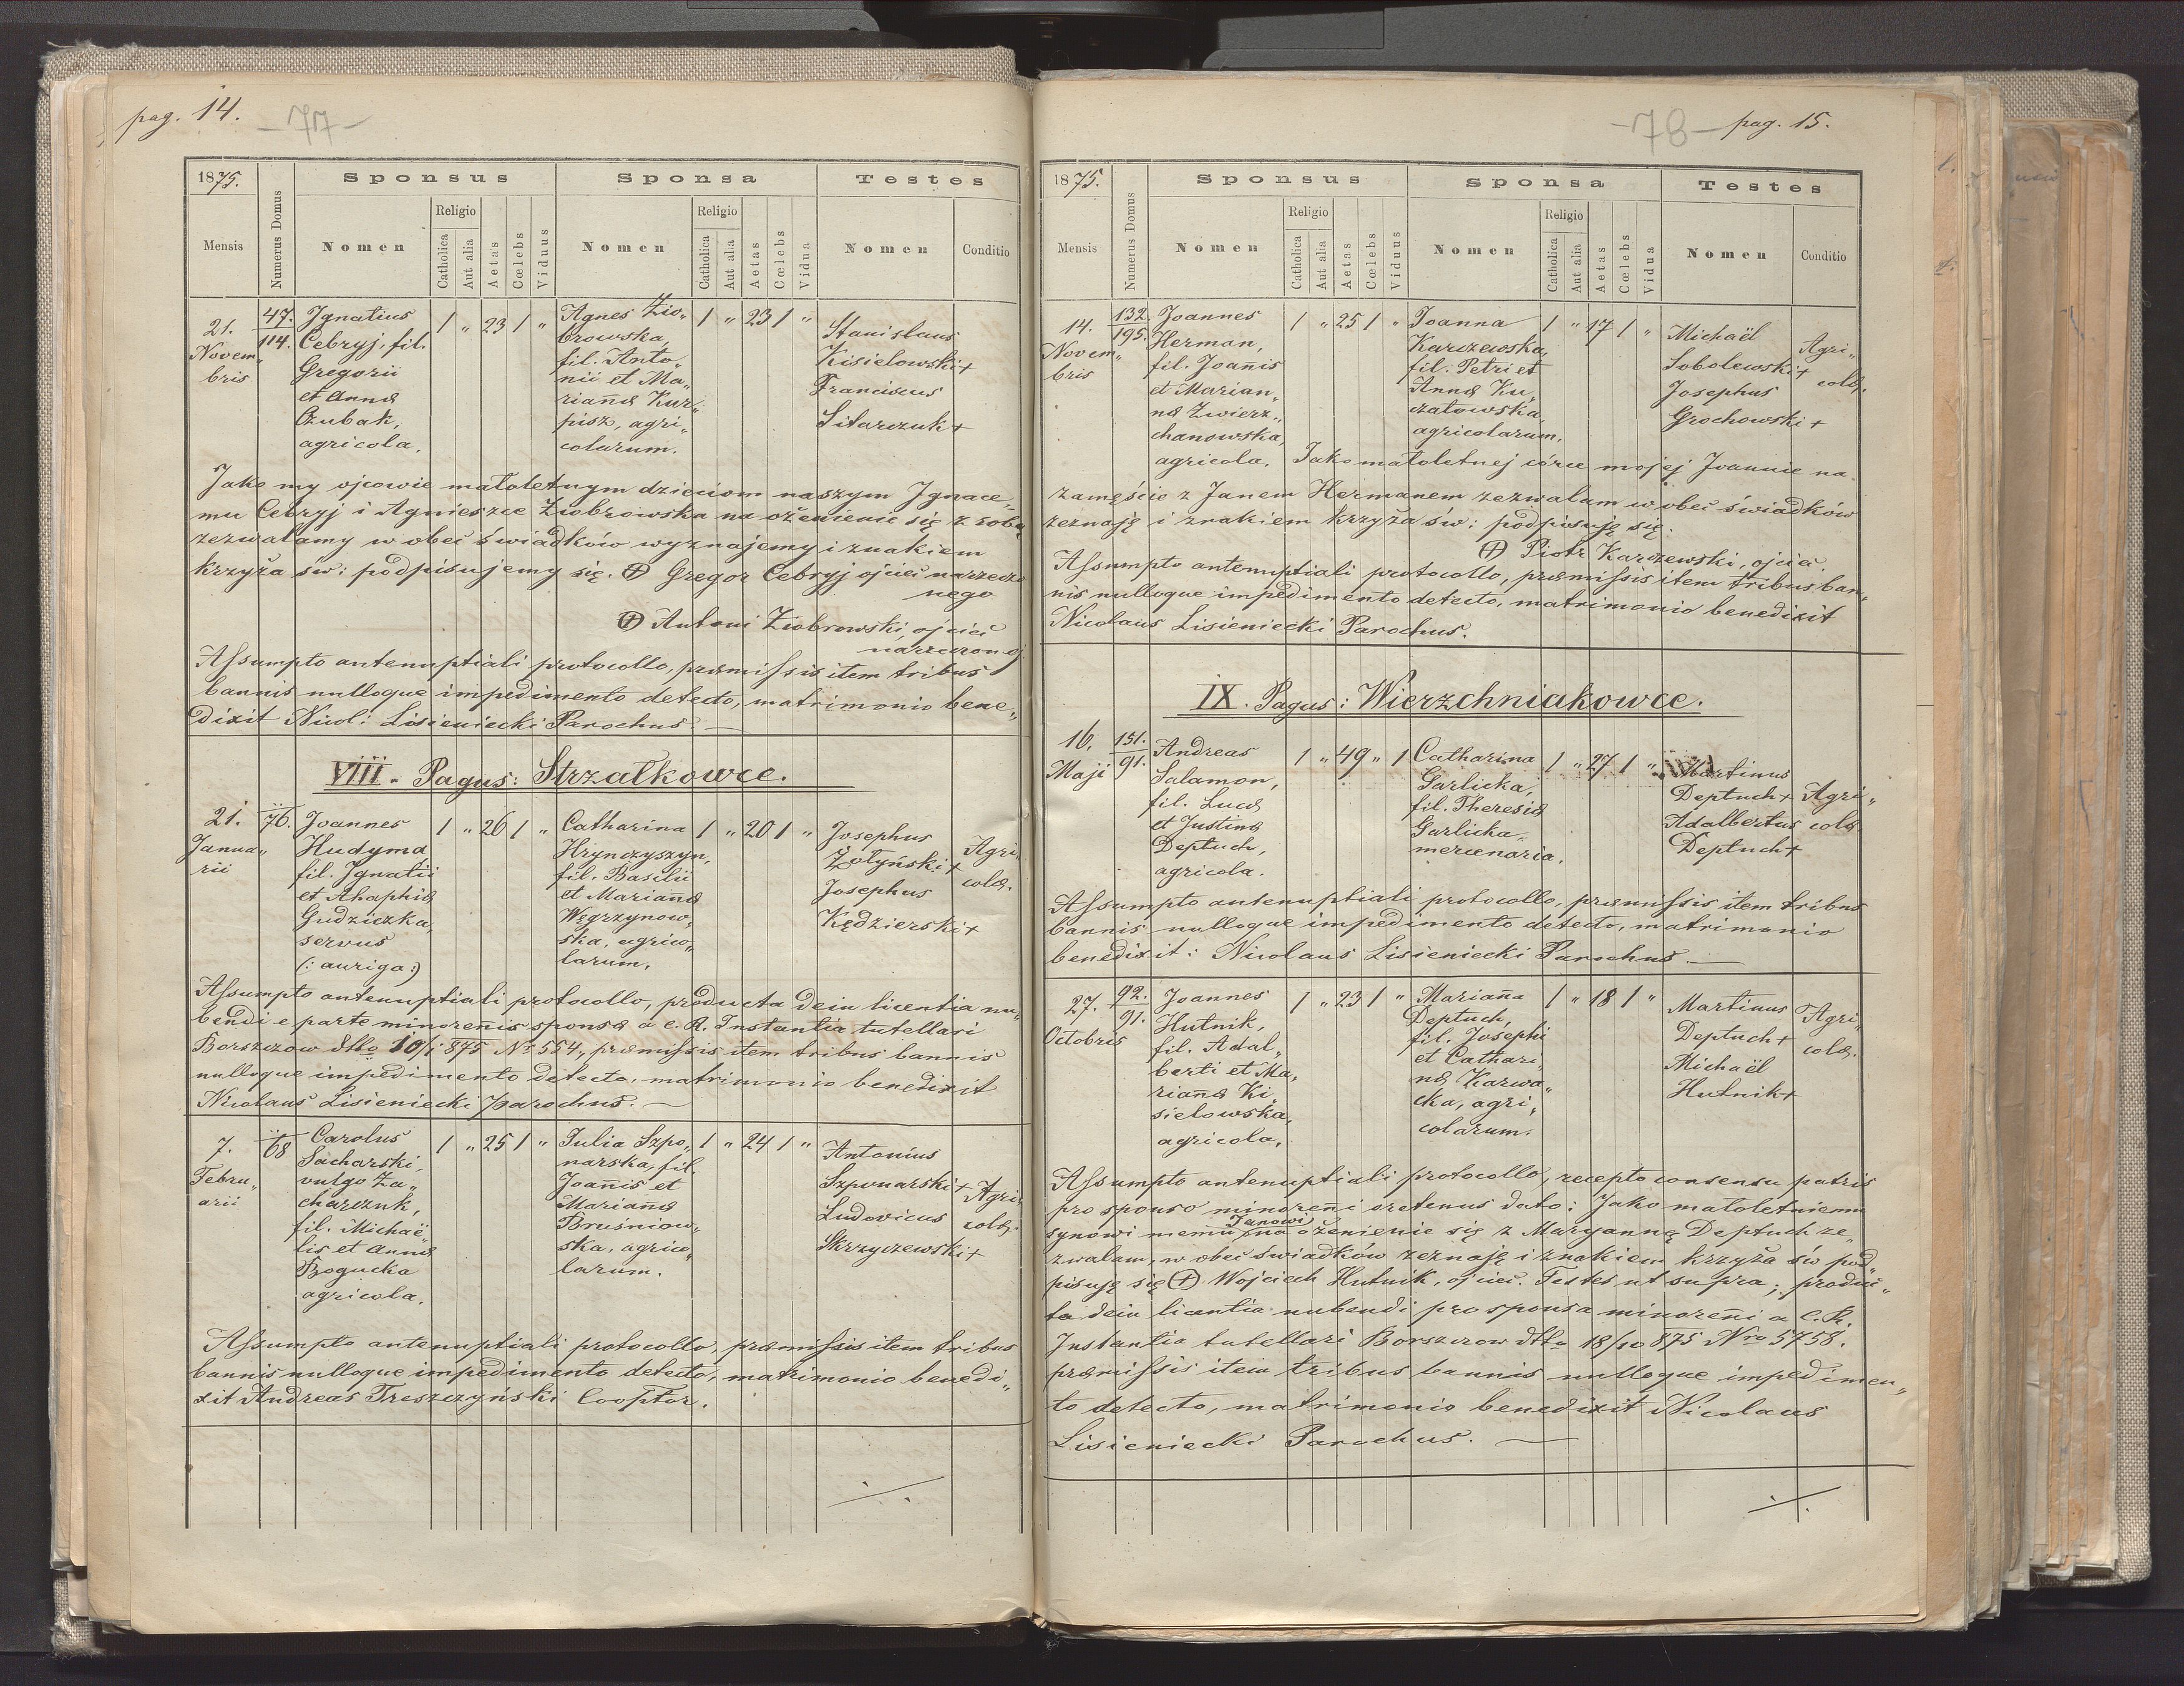 pag. 14.
-77-
1875.
Sponsus
Sponsa
Testes
Mensis
Numerus Domus
Nomen
Religio
Catholica
Aut alia
Aetas
Cœlebs
Viduus
Nomen
Religio
Catholica
Aut alia
Aetas
Cœlebs
Vidua
Nomen
Conditio
21.
Novem„
bris
47.
114.
Ignatius
Cebryj, fil.
Gregorii
et Annæ
Czubak,
agricola.
1 „ 23 1 „
Agnes Zio„
browska,
fil. Anto„
nii et Ma„
riañæ Kur„
pisz, agri„
colarum.
1 „ 23 1 „
Stanislaus
Kisielowski+
Franciscus
Sitarczuk+
Jako my ojcowie małoletnym dzieciom naszym Ignace„
mu Cebryj i Agnieszce Ziobrowska na ożenienie się z sobą
zezwalamy w obec świadków wyznajemy i znakiem
krzyża św: podpisujemy się. (+) Gregor Cebryj ojciec narzeczo
nego
(+) Antoni Ziobrowski, ojciec
narzeczonej.
Assumpto antenuptiali protocollo, præmissis item tribus
bannis nulloque impedimento detecto, matrimonio bene„
dixit Nicol: Lisieniecki Parochus. —
VIII. Pagus: Strzałkowce.
21.
Janua„
rii
76.
Joannes
Hudyma
fil. Ignatii
et Ahaphiæ
Gudziczka,
servus
(: auriga :)
1 „ 26 1 „
Catharina
Hrynczyszyn,
fil. Basilii
et Mariañæ
Węgrzynow„
ska, agrico„
larum.
1 „ 20 1 „
Josephus
Żołyński+
Josephus
Kędzierski+
Agri„
colæ.
Assumpto antenuptiali protocollo, producta dein licentia nu„
bendi e parte minoreñis sponsæ a c. R. Instantia tutellari
Borszczow dtto 10/1 875 No 554, præmissis item tribus bannis
nulloque impedimento detecto, matrimonio benedixit
Nicolaus Lisieniecki parochus. —
7.
Febru„
arii
68
Carolus
Sacharski,
vulgo Za„
charczuk,
fil. Michaë„
lis et Annæ
Bogucka
agricola.
1 „ 25 1 „
Julia Szpo„
narska, fil.
Joañis et
Mariañæ
Bruśniow„
ska, agrico„
larum.
1 „ 24 1 „
Antonius
Szponarski+
Ludovicus
Skrzyczewski+
Agri„
colæ.
Assumpto antenuptiali protocollo, præmissis item tribus
bannis nulloque impedimento detecto, matrimonio benedi„
xit Andreas Treszczyński Cooptor.
-78-
pag. 15.
1875.
Sponsus
Sponsa
Testes
Mensis
Numerus Domus
Nomen
Religio
Catholica
Aut alia
Aetas
Cœlebs
Viduus
Nomen
Religio
Catholica
Aut alia
Aetas
Cœlebs
Vidua
Nomen
Conditio
14.
Novem„
bris
132.
195.
Joannes
Herman,
fil. Joañis
et Marian„
næ Zwierz„
chanowska,
agricola.
1 „ 25 1 „
Joanna
Karczewska,
fil. Petri et
Annæ Ku„
czatowska,
agricolarum.
1 „ 17 1 „
Michaël
Sobolewski+
Josephus
Grochowski+
Agri„
colæ.
Jako małoletnej córce mojej Joannie na
zamęście z Janem Hermanem zezwalam w obec świadków
zeznaję i znakiem krzyża św: podpisuję się.
(+) Piotr Karczewski, ojciec.
Assumpto antenuptiali protocollo, præmissis item tribus ban„
nis nulloque impedimento detecto, matrimonio benedixit
Nicolaus Lisieniecki Parochus.
IX. Pagus: Wierzchniakowce.
16.
Maji
151.
91.
Andreas
Salamon,
fil. Lucæ
et Justinæ
Deptuch,
agricola.
1 „ 49 „ 1
Catharina
Garlicka,
fil. Theresiæ
Garlicka,
mercenaria.
1 „ 27 1 „
Martinus
Deptuch+
Adalbertus
Deptuch+
Agri„
colæ.
Assumpto antenuptiali protocollo, præmissis item tribus
bannis nulloque impedimento detecto, matrimonio
benedixit: Nicolaus Lisieniecki Parochus. —
27.
Octobris
92.
91.
Joannes
Hutnik,
fil. Adal„
berti et Ma„
riañæ Ki„
sielowska,
agricola.
1 „ 23 1 „
Mariaña
Deptuch,
fil. Josephi
et Cathari„
næ Karwa„
cka, agri„
colarum.
1 „ 18 1 „
Martinus
Deptuch+
Michaël
Hutnik+
Agri„
colæ.
Assumpto antenuptiali protocollo, recepto consensu patris
pro sponso minoreñi oretenus dato: Jako małoletniemu
synowi memu Janowi na ożenienie się z Maryanną Deptuch ze„
zwalam, w obec świadków zeznaję i znakiem krzyża św pod„
pisuję się (+) Wojciech Hutnik, ojciec. Testes ut supra; produc„
ta dein licentia nubendi pro sponsa minoreñi a C. R.
Instantia tutellari Borszczow dtto 18/10 875 Nro 5758.
præmissis item tribus bannis nulloque impedimen„
to detecto, matrimonio benedixit Nicolaus
Lisieniecki Parochus. —